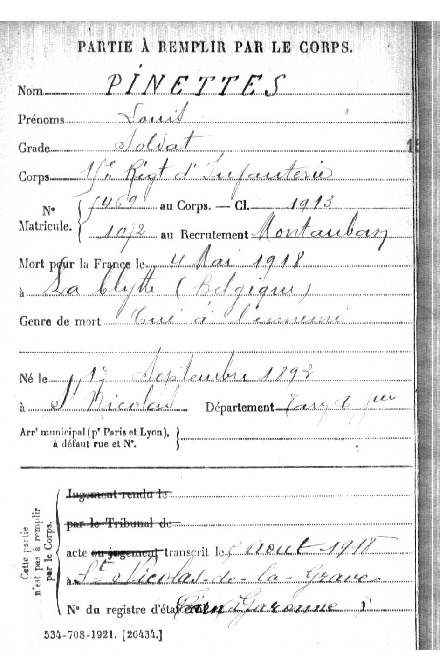 PARTIE À REMPLIR PAR LE CORPS.
Nom PINETTES
Prénoms Louis
Grade Soldat
Corps Rigt d'Infanterie
N° Matricule. { au Corps. — Cl. 1913
1072 au Recrutement Montauban
Mort pour la France le 4 Mai 1918
à La Clytte (Belgique)
Genre de mort Tué à l'ennemi
Né le Septembre 1893
à St Nicolas Département Tarn & Gne
Arrt municipal (pr Paris et Lyon), à défaut rue et N°. }
Cette partie n'est pas à remplir par le Corps.
Jugement rendu le
par le Tribunal de
acte ou jugement transcrit le Aout 1918
à St Nicolas-de-la-Grave
N° du registre d'état (Tarn & Garonne)
534-708-1921. [26434.]